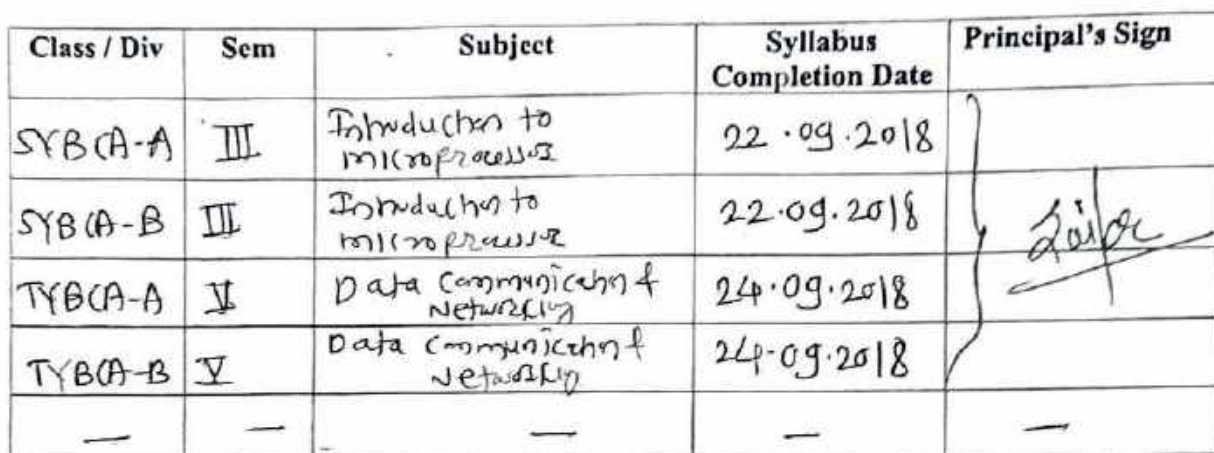 Class / Div Sem Subject Syllabus Completion Date Principal's Sign
SYBCA-A III Introduction to microprocessor 22.09.2018
SYBCA-B III Introduction to microprocessor 22.09.2018
TYBCA-A V Data Communication & Networking 24.09.2018
TYBCA-B V Data Communication & Networking 24.09.2018
— — — — —